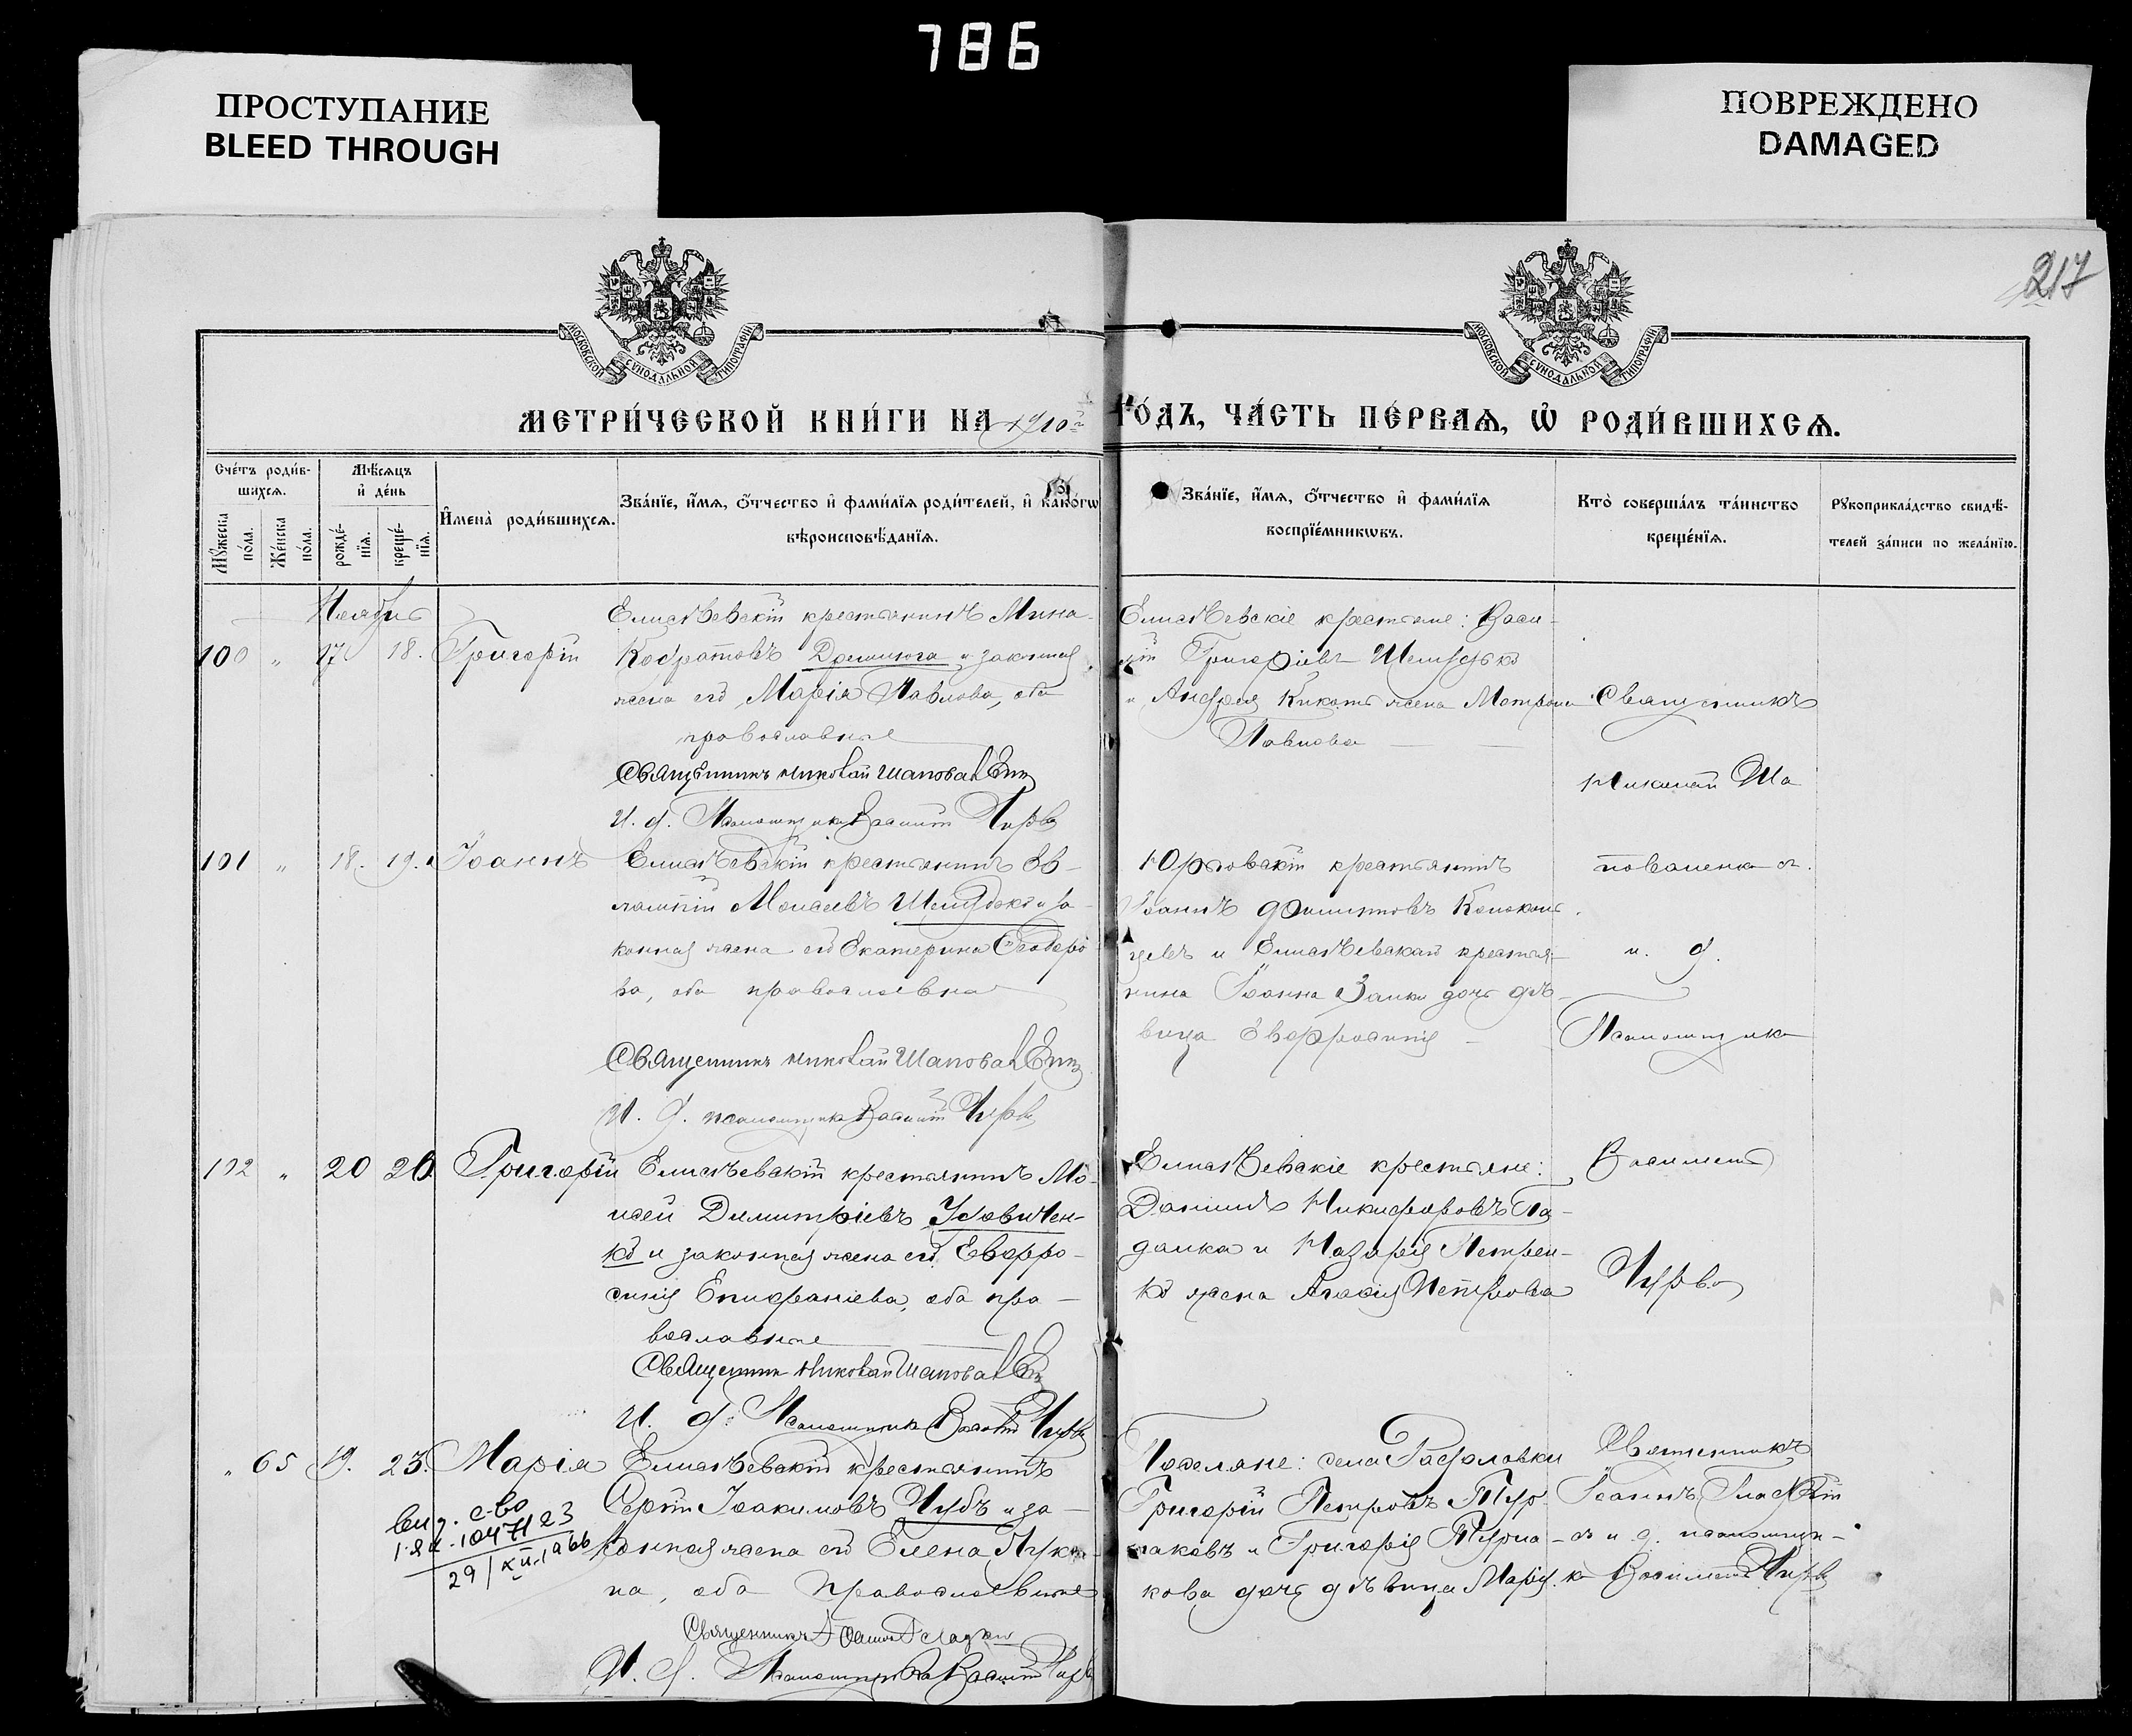 786
ПРОСТУПАНИЕ
BLEED THROUGH
ПОВРЕЖДЕНО
DAMAGED
217
МОСКОВСКОЙ СѴНОДАЛЬНОЙ ТИПОГРАФІИ
МОСКОВСКОЙ СѴНОДАЛЬНОЙ ТИПОГРАФІИ
МЕТРИ́ЧЕСКОЙ КНИ́ГИ НА 1910й ГО́ДЪ, ЧА́СТЬ ПЕ́РВАѦ, Ѿ РОДИ́ВШИХСѦ.
Сче́тъ роди́в-
шихсѧ.
Мꙋ́жеска по́ла.
Же́нска по́ла.
Мѣ́сѧцъ
и҆ де́нь
рожде́-
нїѧ.
креще́-
нїѧ.
И҆мена̀ роди́вшихсѧ.
Зва́нїе, и҆́мѧ, ѻ҆́тчество и҆ фами́лїѧ роди́телей, и҆ како́гѡ
вѣроисповѣ́данїѧ.
Зва́нїе, и҆́мѧ, ѻ҆́тчество и҆ фами́лїѧ
воспрїе́мникѡвъ.
Кто̀ соверша́лъ та́инство
креще́нїѧ.
Рꙋкоприкла́дство свидѣ́-
телей за́писи по жела́нїю.
Ноябрь
100 " 17 18. Григорій
Елисѣевскій крестьянинъ Мина
Кодратовъ и законная
жена его Марія Павлова, оба
православные
Священникъ Николай Шаповаленко
И. д. Псаломщика Василій Чирва
Елисѣевскіе крестьяне: Васи-
лій Григоріевъ Шелудько
и Андрея жена Матрона
Павлова
Священникъ
Николай Ша
поваленко съ
и. д.
Псаломщика
Василіемъ
Чирвою
101 " 18. 19. Іоаннъ
Елисѣевскій крестьянинъ Ев-
лампій Моисеевъ Шелудько и за-
конная жена его Екатерина Ѳеодоро-
ва, оба православные
Священникъ Николай Шаповаленко
И. д. псаломщика Василій Чирва
Юрьовскій крестьянинъ
Іоаннъ Филипповъ
и Елисѣевскаго крестья-
нина Іоанна Заики дочь дѣ-
вица Евфросинія
102 " 20 20. Григорій
Елисѣевскій крестьянинъ Мо-
исей Димитріевъ Усовичен-
ко и законная жена его Евфро-
синія Епифаніева, оба пра-
вославные
Священникъ Николай Шаповаленко
И. д. Псаломщика Василій Чирва
Елисѣевскіе крестьяне:
Даніилъ Никифоровъ Га-
далка и Назарія Петрен-
ко жена Агафія Петрова
" 65 19. 23. Марія
Елисѣевскій крестьянинъ
Сергій Іоакимовъ Чубъ и за-
конная жена его Елена Луки-
на, оба православные
Священникъ Іоаннъ Гладкій
И. д. Псаломщика Василій Чирва
Поселяне: села
Григорій Петровъ Тур-
лаковъ и Григорія Турла-
кова дочь дѣвица Марія.
Священникъ
Іоаннъ Гладкій
съ и. д. псаломщи-
ка Василіемъ Чирвой
выд. с-во
29/XII.1966